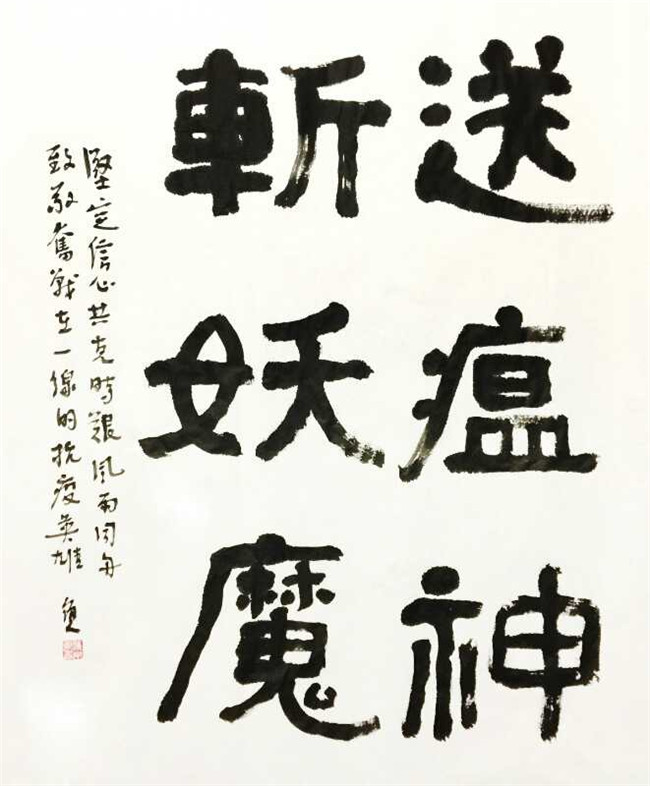 送瘟神
斬妖魔
堅定信心共克時艱風雨同舟
致敬奮戰在一線的抗疫英雄